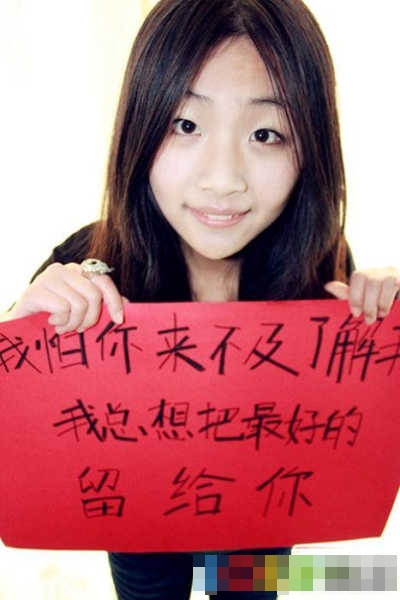 我怕你来不及了解我
我总想把最好的
留给你